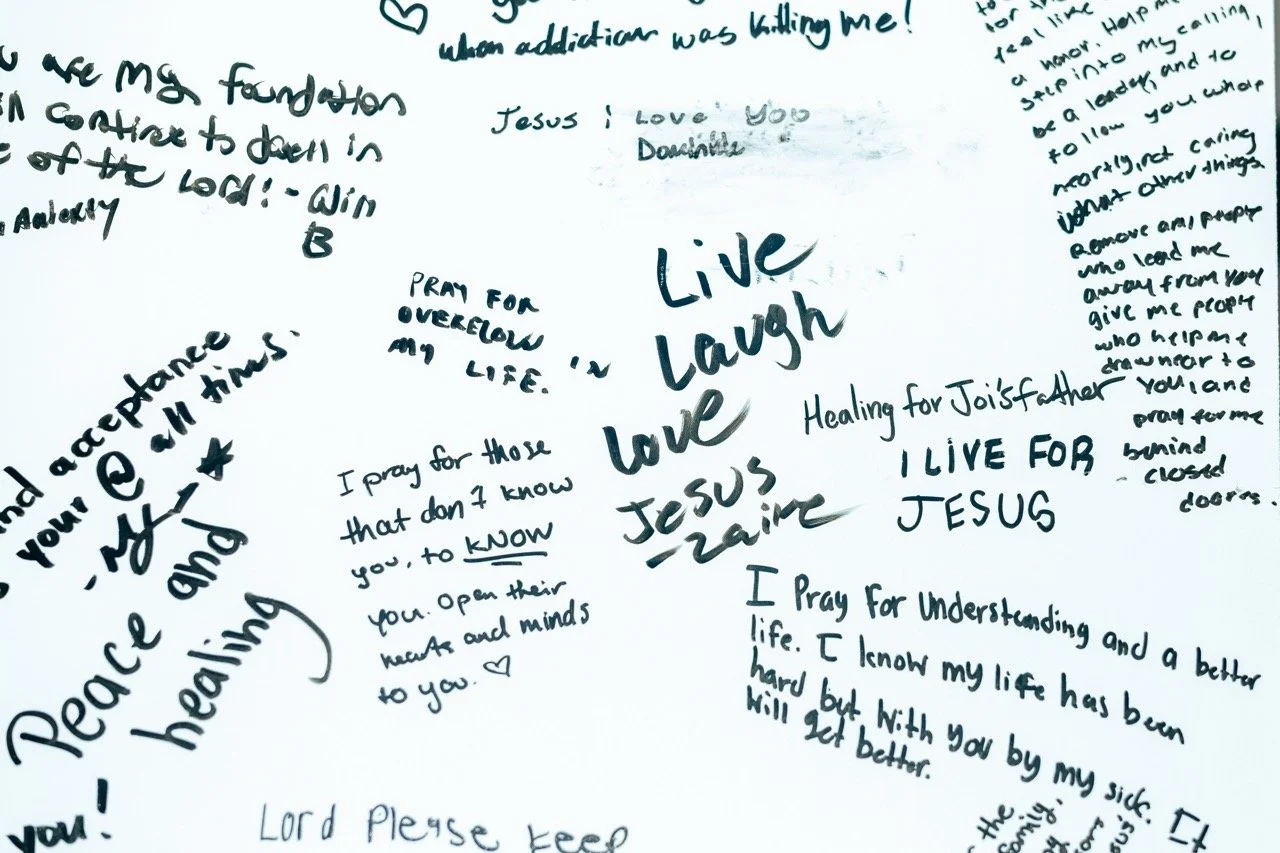 when addiction was killing me!
are my foundation
continue to dwell in
of the Lord! - Win
B
Jesus i Love You
to
for th
feel like
a honor. Help me
step into my calling,
be a leader, and to
follow you whole
heartly, not caring
what other things
Remove any people
who lead me
away from you
give me people
who help me
draw near to
you, and
pray for me
behind
closed
doors.
Live
Laugh
Love
Jesus
-zaire
PRAY FOR
OVERFLOW in
MY LIFE.
Healing for Joi's father
I LIVE FOR
JESUS
acceptance
your @ all times.
Peace and
healing
I pray for those
that don't know
you, to KNOW
you. Open their
hearts and minds
to you. ♡
I Pray for Understanding and a better
life. I know my life has been
hard but with you by my sick. It
will get better.
you!
Lord Please keep
the